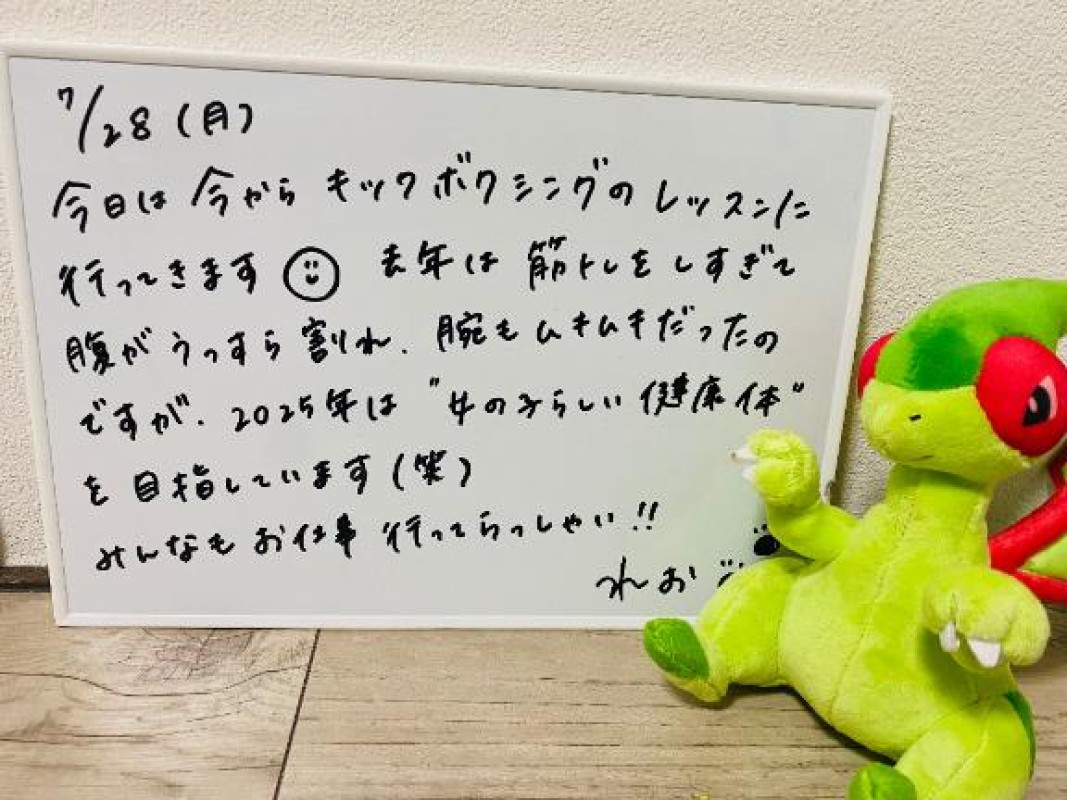 7/28(月)
今日は今からキックボクシングのレッスンに
行ってきます 去年は筋トレをしすぎて
腹がうっすら割れ、腕もムキムキだったの
ですが、2025年は"女の子らしい健康体"
を目指しています(笑)
みんなもお仕事行ってらっしゃい!!
れお